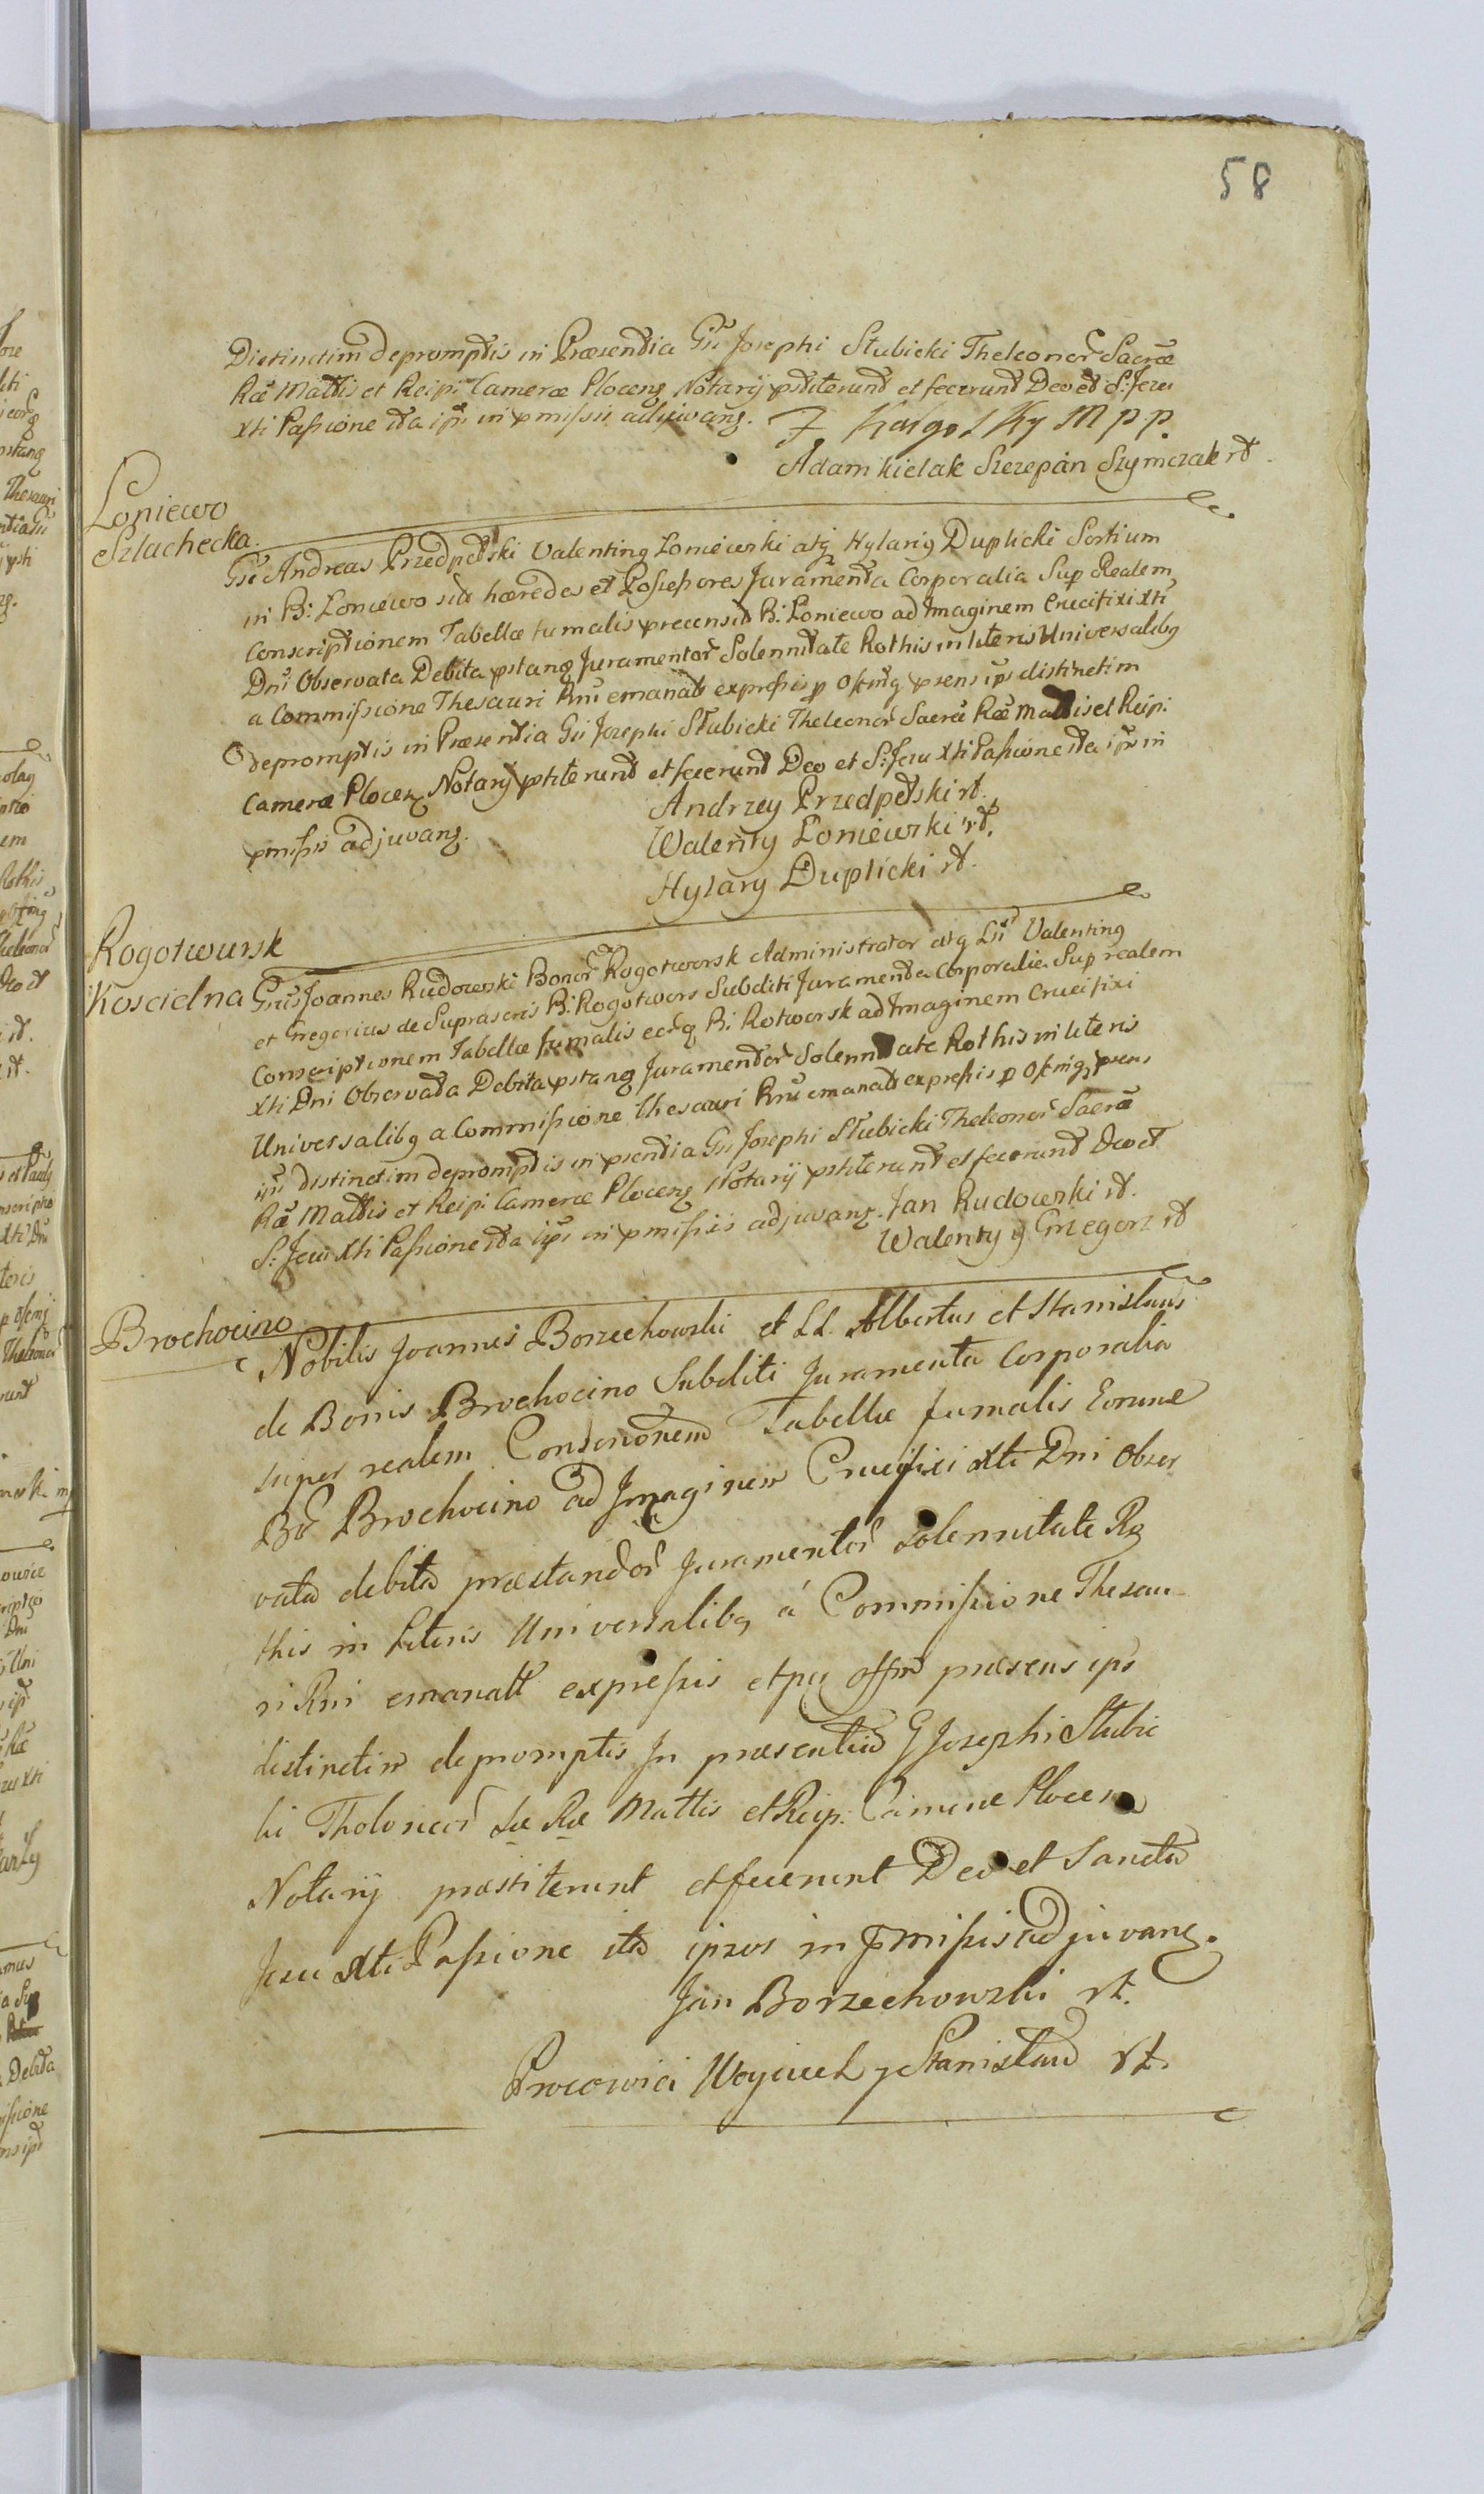 58
Distinctim depromptis in Præsentia Gsi Josephi Stubicki Theleonor Sacræ
Ræ Mattis et Reip: Cameræ Plocens Notarÿ pstiterunt et fecerunt Deo et S: Jezu
Xti Passione Ita ips in pmissis adjuvang.
Adam Kielak Szczepan Szymczak rt.
Loniewo
Szlachecka.
Gsi Andreas Przedpełski Valenting Loniewski atq Hylarig Duplicki Sortium
in B: Loniewo sitt hæredes et Possessores Juramenta Corporalia Sup Realem
Conscriptionem Tabellæ fumalis precensit B: Loniewo ad Imaginem Crucifixi Xti
Dni Observata Debita pstang Juramentor Solennitate Rothis in literis Universalibg
a Commissione Thesauri Rni emanatt expressis p præns ips distinctim
depromptis in Præsentia Gsi Josephi Stubicki Theleonor Sacræ Ræ Mattis et Reip:
Cameræ Plocens Notarÿ pstiterunt et fecerunt Deo et S: Jezu Xti Passione Ita ips in
pmissis adjuvang.
Andrzey Przedpełski rt.
Walenty Loniewski rt.
Hylary Duplicki rt.
Rogotwursk
Koscielna
Gsus Joannes Rudowski Bonor Rogotworsk Administrator atq Lsi Valenting
et Gregorius de Suprascris B: Rogotwors Subditi Juramenta Corporalia Sup realem
Conscriptionem Tabellæ fumalis B: Rotworsk ad Imaginem Crucifixi
Xti Dni Observata Debita pstang Juramentor Solennitate Rothis in literis
Universalibg a Commissione Thesauri Rni emanatt expressis p præns
ips distinctim depromptis in psentia Gsi Josephi Stubicki Theleonor Sacræ
Ræ Mattis et Reip: Cameræ Plocens Notarÿ pstiterunt et fecerunt Deo et
S: Jezu Xti Passione Ita ips in pmissis adjuvang. Jan Rudowski rt.
Walenty y Grzegorz rt
Brochocino
Nobilis Joannes Borzechowski et LL. Albertus et Stanislaus
de Bonis Brochocino Subditi Juramenta Corporalia
super realem Tabellæ fumalis
Br Brochocino ad Imaginem Crucifixi Xti Dni Obser
vata debita præstandor Juramentor solennitate Ro
this in literis Universalibg á Commissione Thesau
ri Rni emanatt expressis præsens ips
distinctim depromptis In præsentia G Josephi Stubic
ki Tholonear Sæ Ræ Mattis et Reip: Cameræ Plocens
Notarÿ præstiterunt et fecerunt Deo et Sancta
Jezu Xti Passione ita ipsos in pmissis adjuvang.
Jan Borzechowski rt.
Pracowici Woyciech y Stanisław rt.